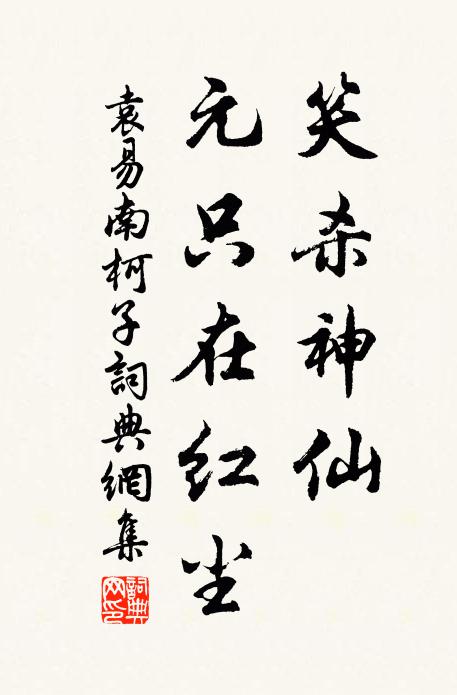 笑杀神仙
元只在红尘
袁易南柯子詞典網集
詞典网印